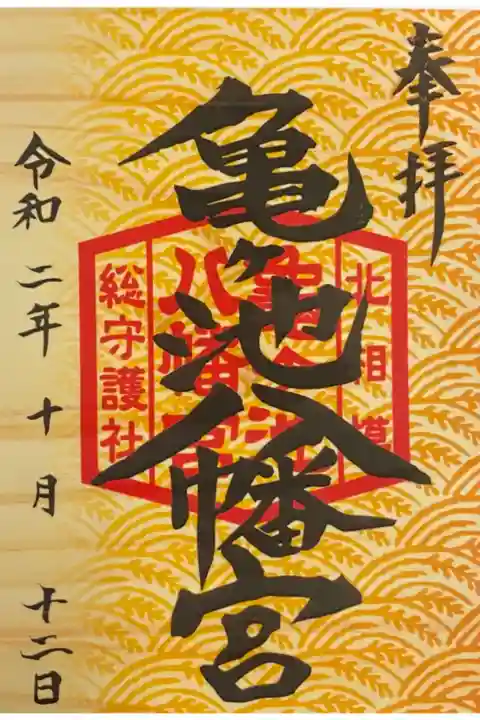 奉拝
亀ヶ池八幡宮
北相模
亀ヶ池
八幡宮
総守護社
令和二年十月十二日